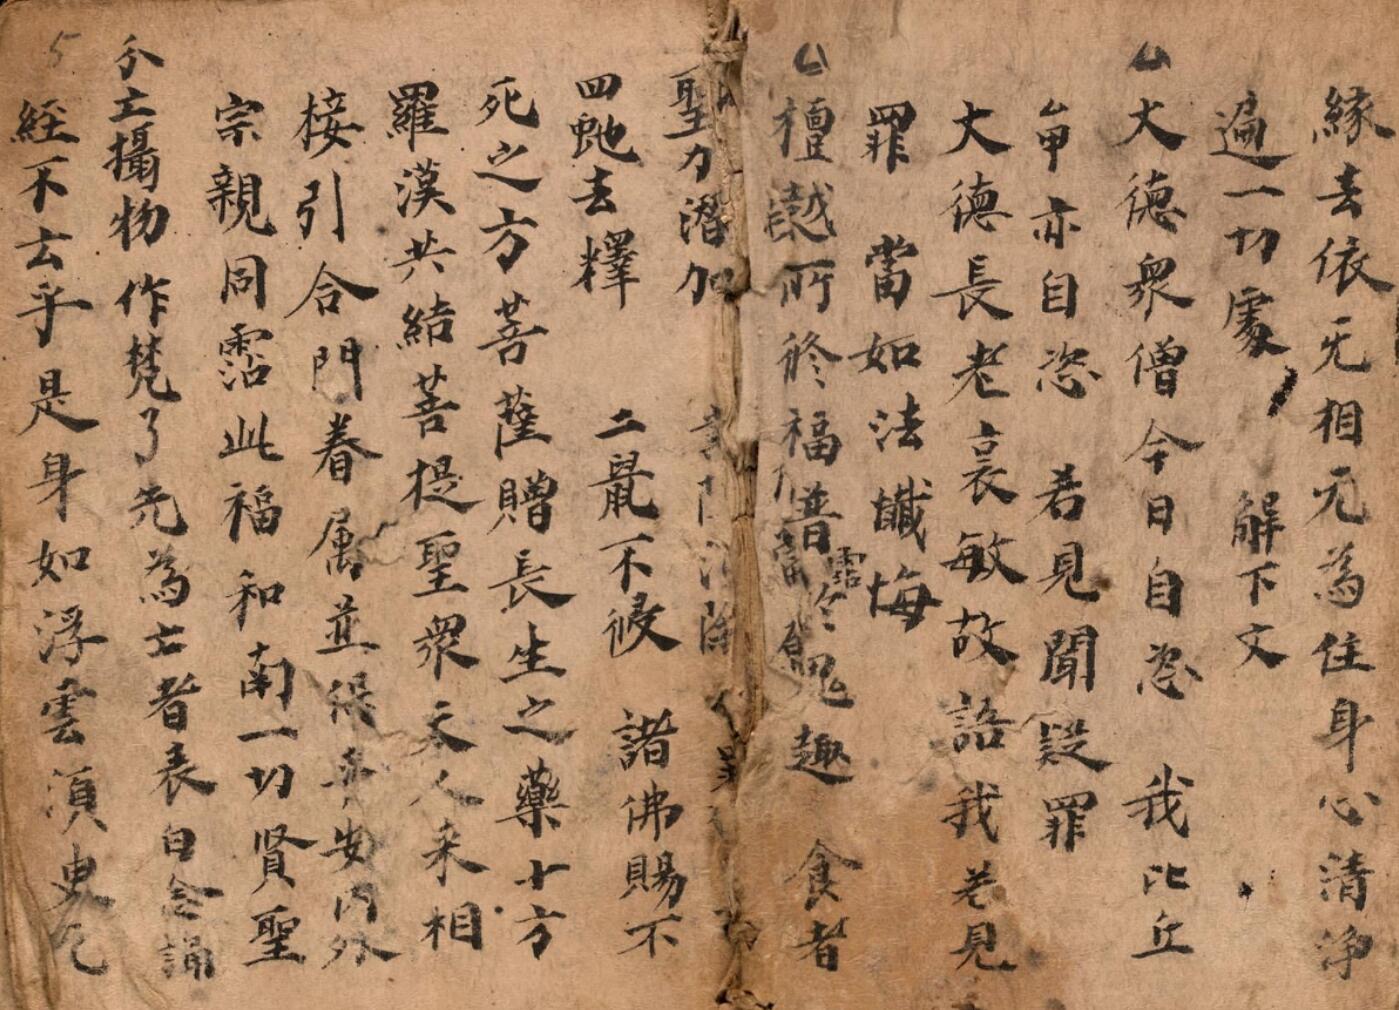 縁去依无相无為住身心清净
遍一切處 解下文
大德衆僧今日自恣 我比丘
厶甲亦自恣 若見聞疑罪
大德長老哀敏故語我若見
罪 當如法懺悔
檀越所修福普霑令鬼趣 食者
聖力潜加
四虵去釋 二鼠不侵 諸佛賜不
死之方菩薩贈長生之藥十方
羅漢共結菩提聖衆天人来相
接引合門眷属並得平安内外
宗親同霑此福和南一切賢聖
尒亡攝物作梵了先為亡者表白念誦
経不去乎是身如浮雲須臾
5